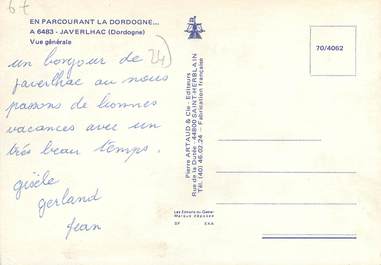 67
EN PARCOURANT LA DORDOGNE...
A 6483 - JAVERLHAC (Dordogne)
Vue générale
un bonjour de 24)
Javerlhac au nous
passons de bonnes
vacances avec un
très beau temps.
gisèle
gerland
jean
Pierre ARTAUD & Cie - Editeurs
Rue de la Durée - 44800 SAINT-HERBLAIN
Tél. (40) 46.02.24 - Fabrication française
70/4062
Marque déposée